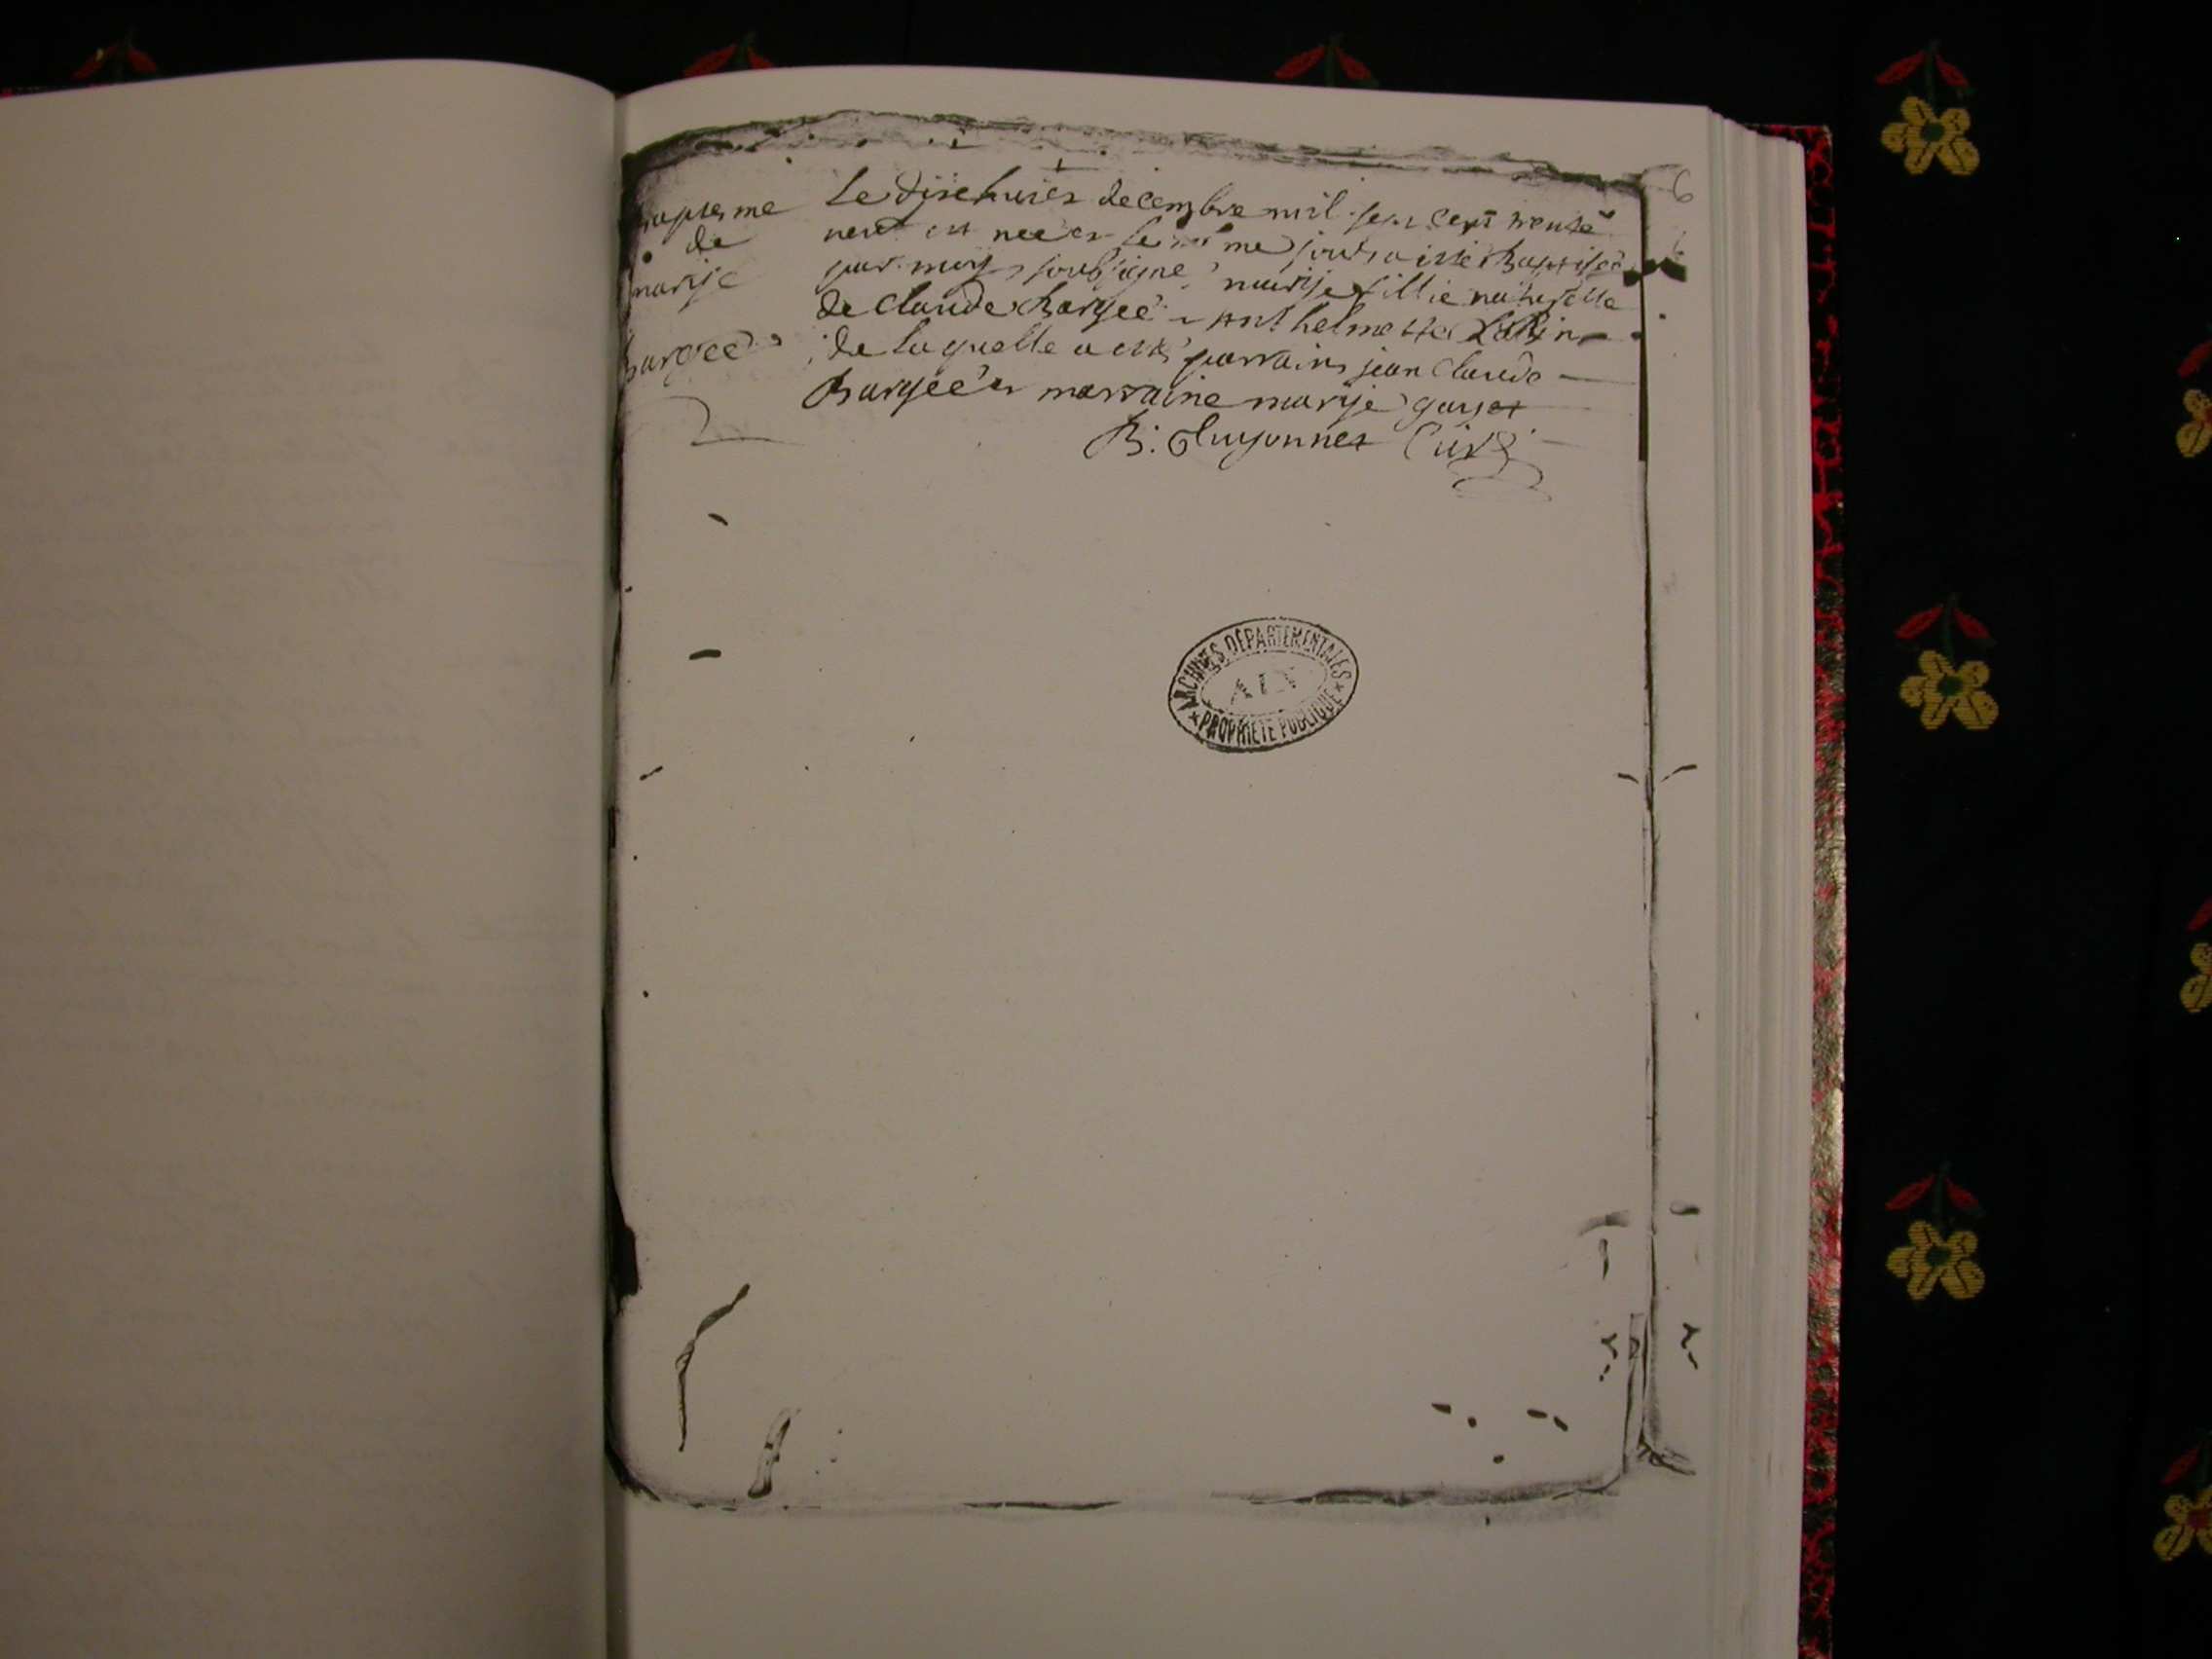 6
baptesme
de
marije
bargeé
Le dixehuict decembre mil sept cent trente
neuf est neé et le même jour a esté baptiseé
par moy soubsigné marije fillie naturelle
de claude bargeé anthelmette
de laquelle a esté parrain jean claude
bargeé et marraine marije
B: Guyonnet Curé
ARCHIVES DÉPARTEMENTALES
AIN
PROPRIÉTÉ PUBLIQUE